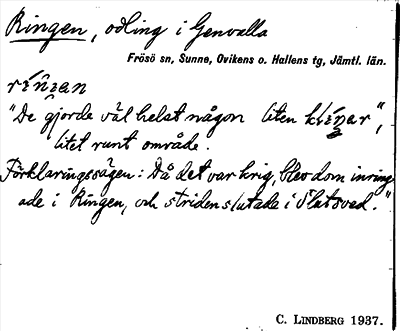 Ringen, odling i Genvalla
Frösö sn, Sunne, Ovikens o. Hallens tg, Jämtl. län.
"De gjorde väl helst någon liten
litet runt område.
Förklaringssägen: Då det var krig, blev dom inring
ade i Ringen, och striden slutade i Slutsved."
C. LINDBERG 1937.